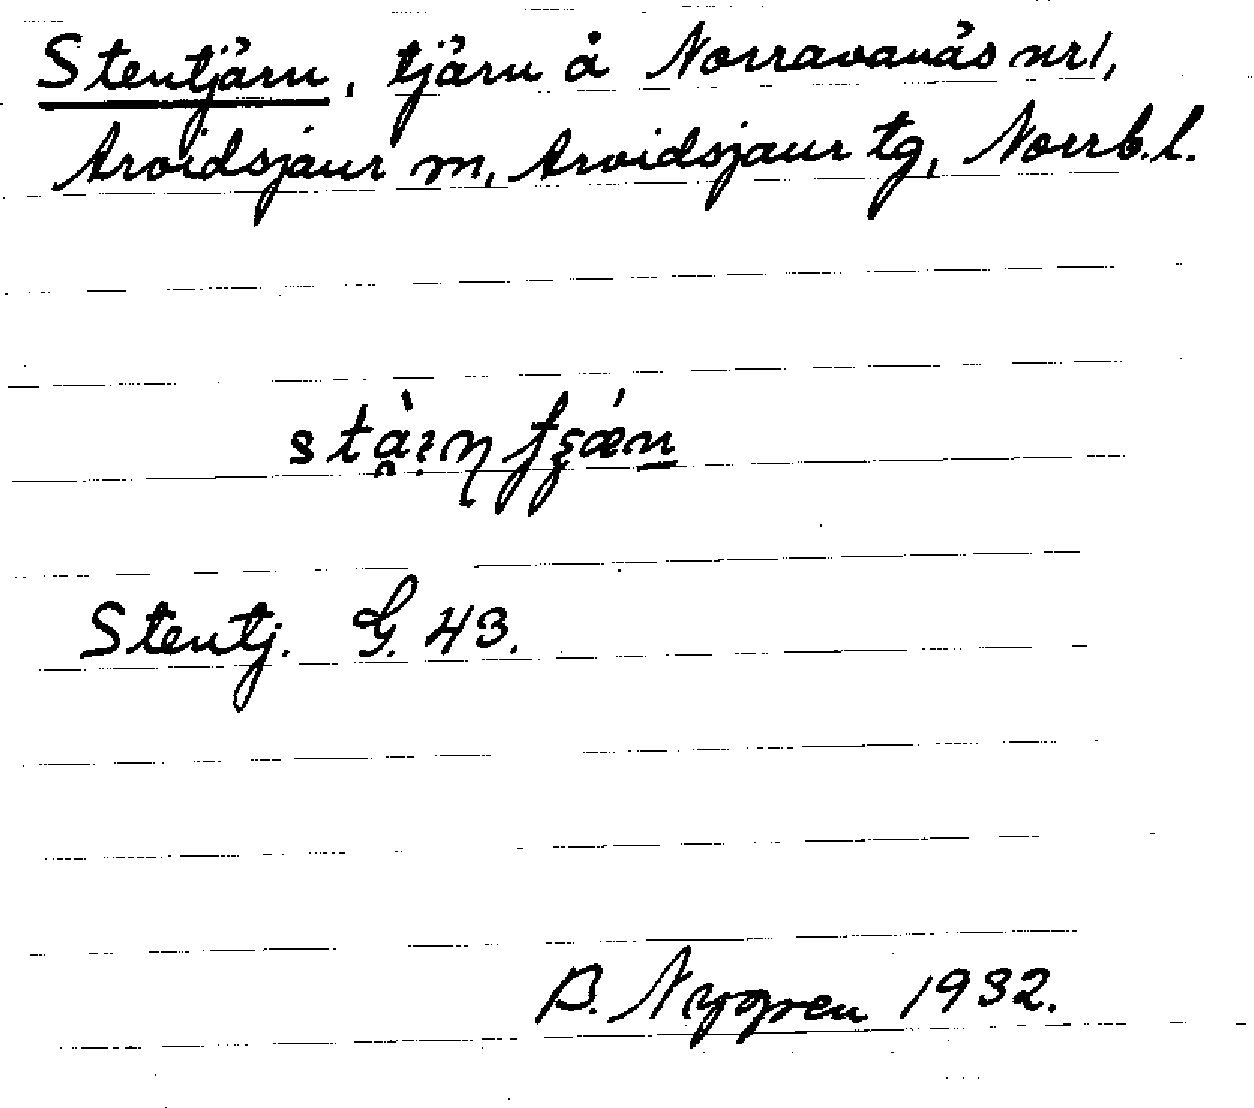 Stentjärn, tjärn å Norravanås nr 1,
Arvidsjaur sn, Arvidsjaur tg, Norrb. l.
Stentj. G. 43.
B. Nygren 1932.